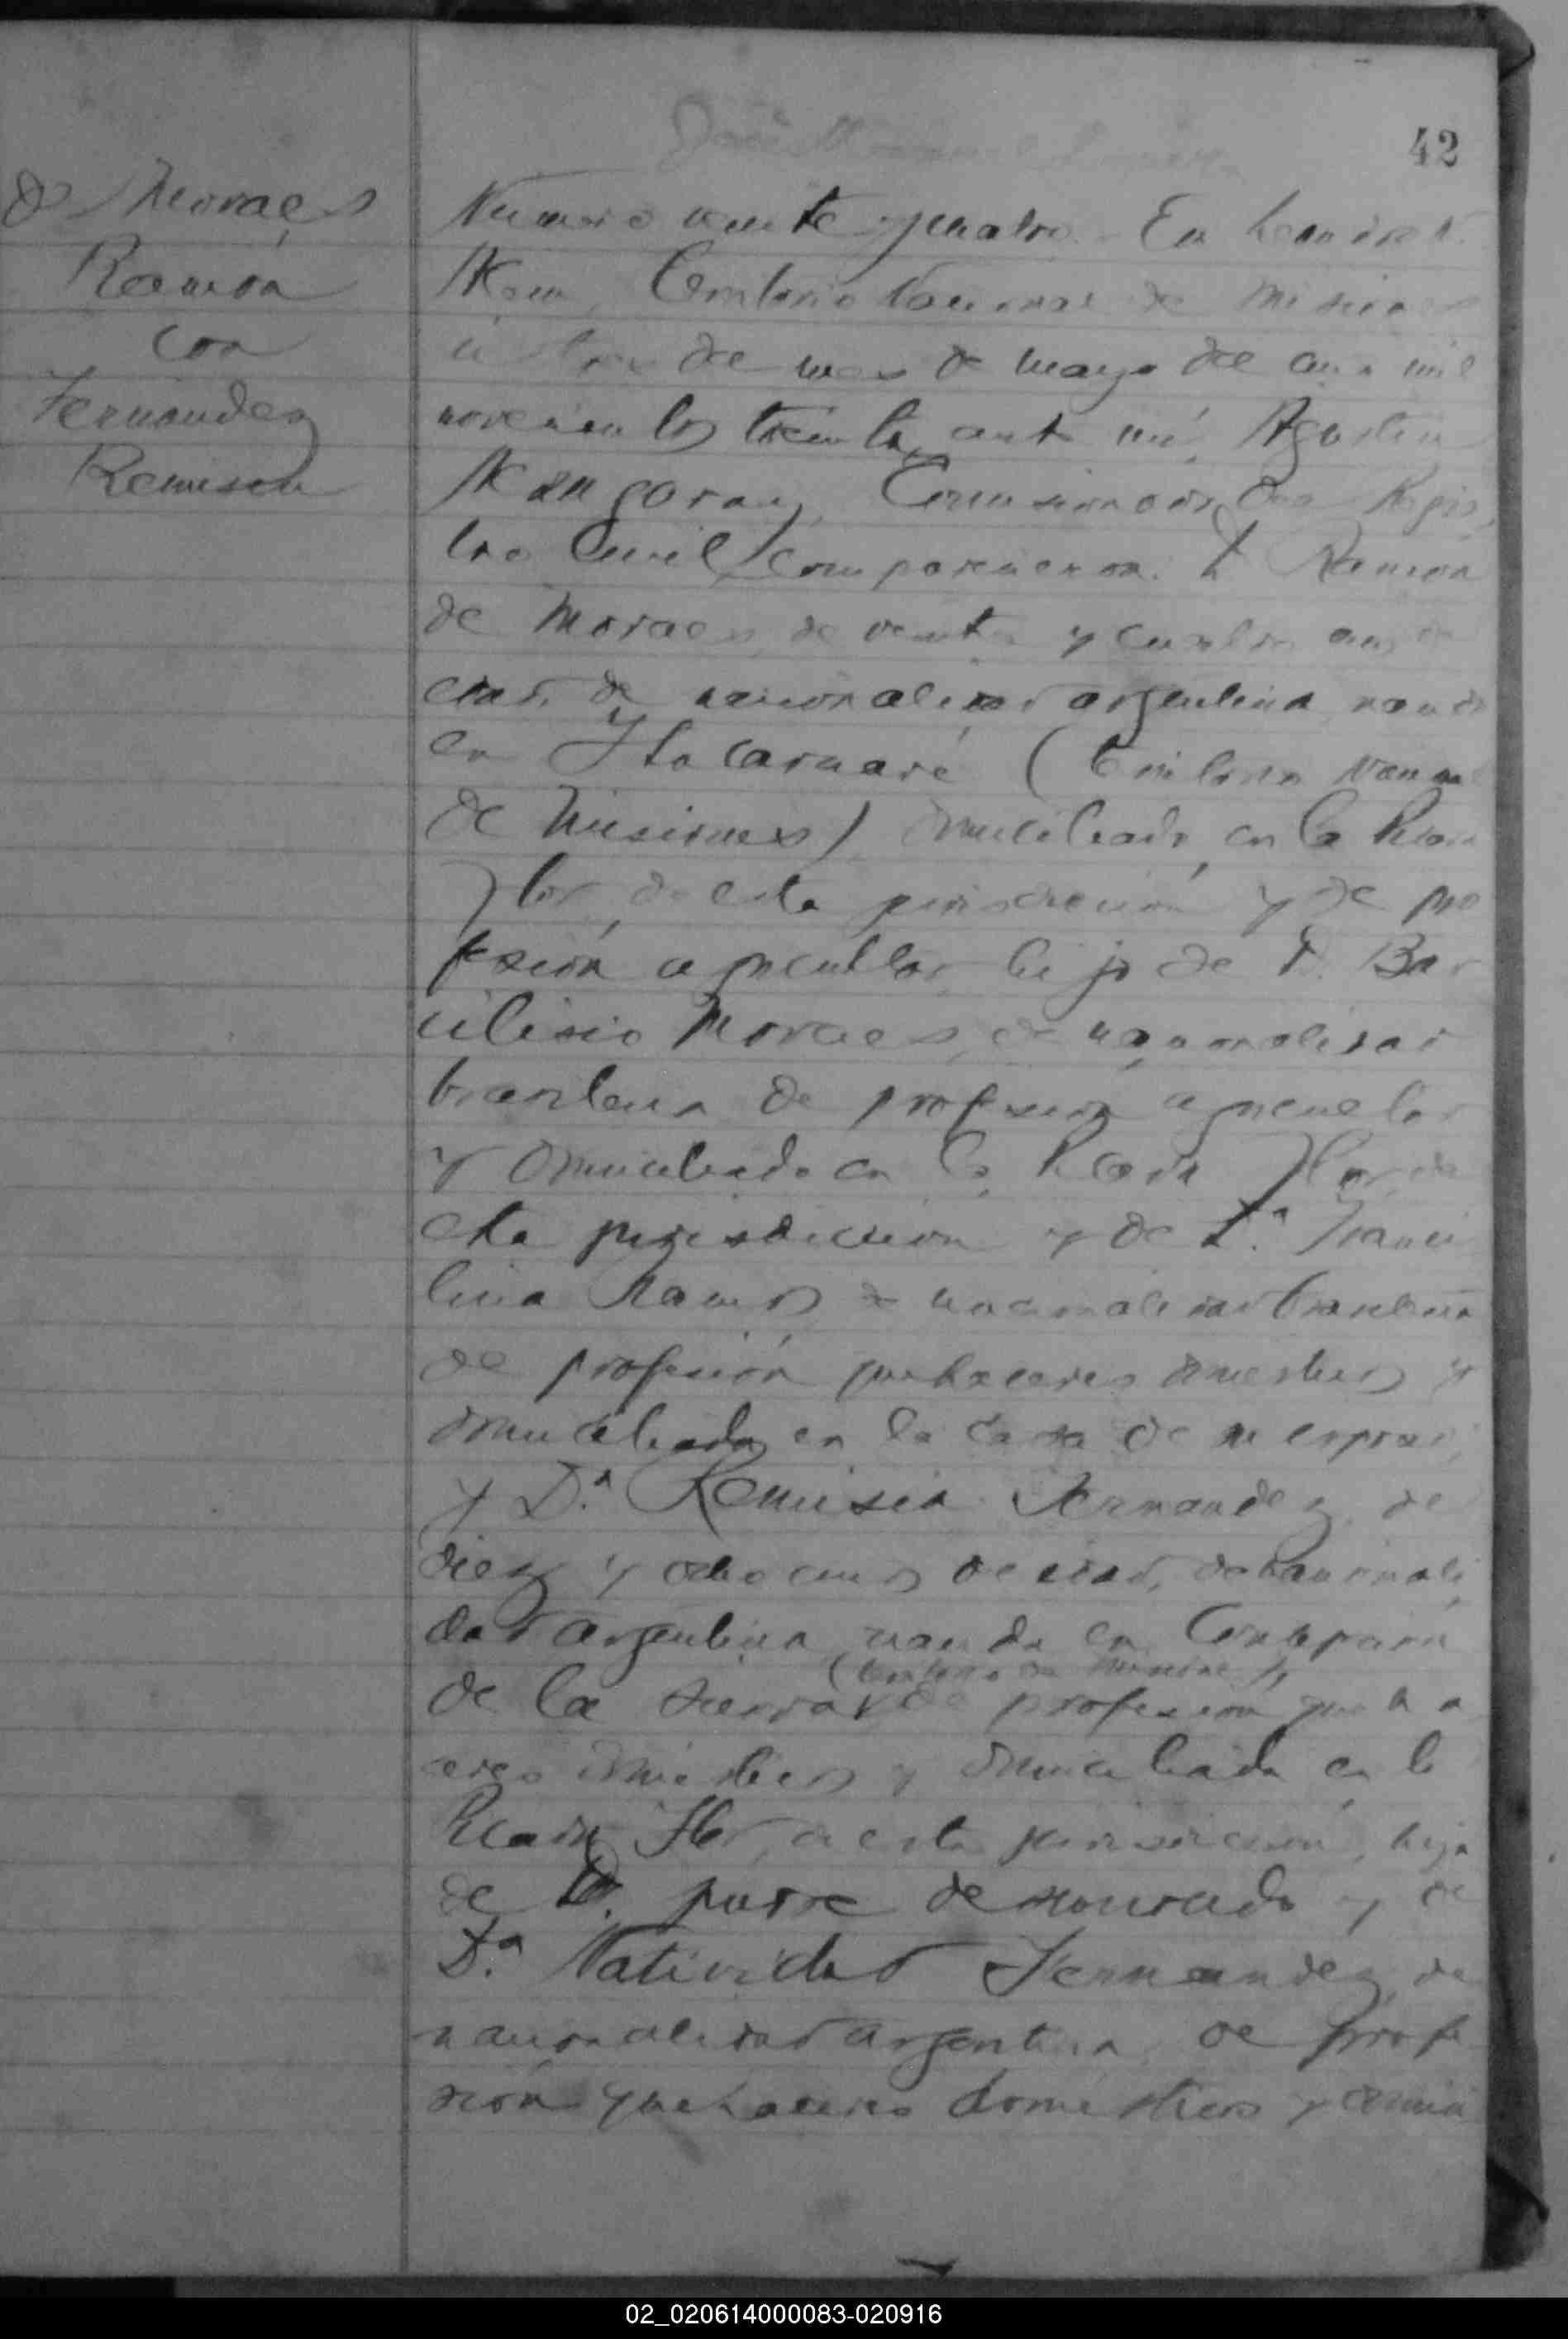 42
de Moraes
Ramón
con
Fernandez
Remisia
Numero veinte y cuatro. En Leandro N.
Alem, Territorio Nacional de Misiones
a del mes de mayo del año mil
novecientos treinta, ante mí, Agustin
Comisionado del Regis
tro Civil, comparecieron: D. Ramón
de Moraes, de veinte y cuatro años de
edad, de nacionalidad argentina, nacido
en Itacaruaré (Territorio Nacional
de Misiones), domiciliado en la Picada
Flor, de esta jurisdicción y de pro
fesión agricultor, hijo de D. Bar
cilisio Moraes, de nacionalidad
brasilera de profesión agricultor
y domiciliado en la Picada Flor, de
esta jurisdicción y de D.ª Franci
lina Ramos de nacionalidad brasilera
de profesión quehaceres domesticos y
domiciliada en la casa de su esposo;
y D.ª Remisia Fernandez, de
diez y ocho años de edad, de nacionali
dad argentina, nacida en Concepción
de la Sierra (territorio de Misiones), de profesión queha
ceres domésticos y domiciliada en la
Picada Flor, de esta jurisdicción, hija
de D. padre desconocido y de
D.ª Natividad Fernandez, de
nacionalidad argentina, de profe
sión quehaceres domésticos y domici
02_020614000083-020916